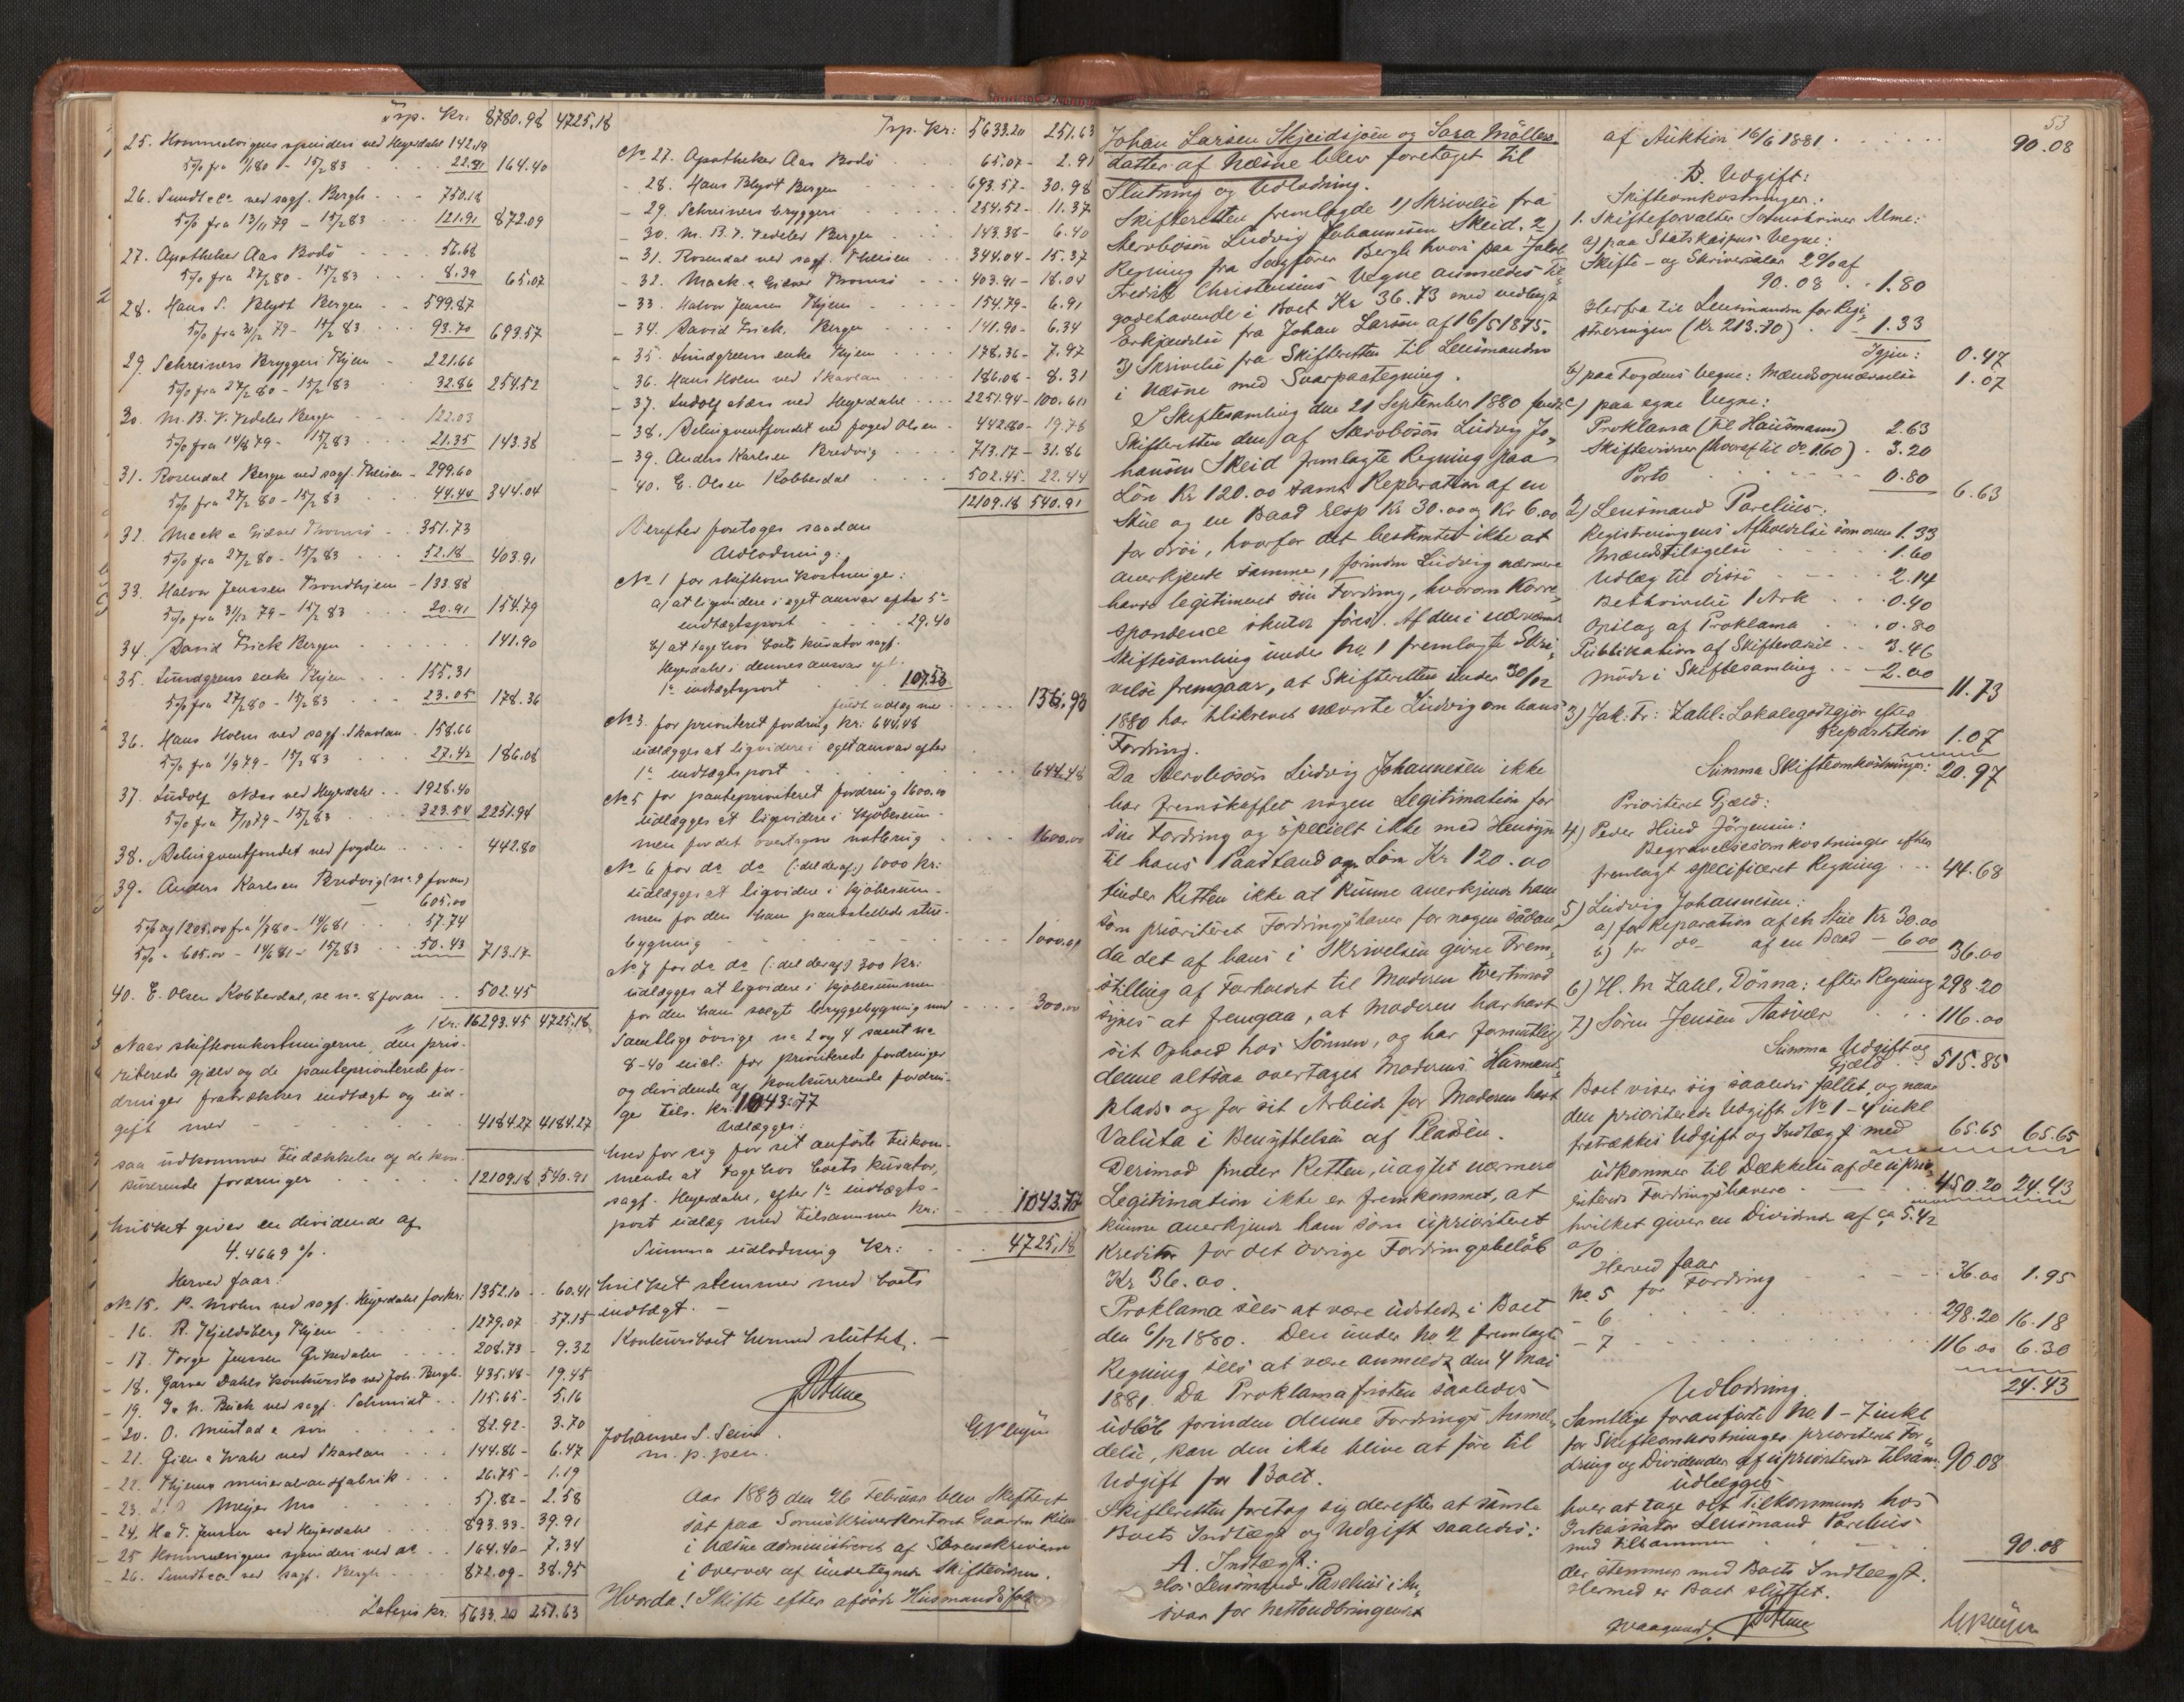 Trp. Kr. 8780.98 4725.18
25. Hommelvigens spinderi ved Heyerdahl 142.19
5% fra 1/180 - 15/2 83 . . . 22.21 164.40
26. Sundt & Co ved sagf. Bergh - - 750.18
5% fra 13/11 79 - 15/2 83 . . . 121.91 872.09
27. Apotheker Aas Bodö . . . . 56.68
5% fra 27/2 80 - 15/2 83 . . . 8.39 65.07
28. Hans S. Blydt Bergen - - 599.87
5% fra 31/12 79 - 15/2 83 . . . 93.70 693.57
29. Schreiners Bryggeri Thjem - 221.66
5% fra 27/2 80 - 15/2 83 . . . 32.86 254.52
30. M. B. V. Vedeler Bergen - - - 122.03
5% fra 14/8 79 - 15/2 83 . . . 21.35 143.38
31. Rosendal Bergen ved sagf. Theisen - 299.60
5% fra 27/2 80 - 15/2 83 . . . 44.44 344.04
32. Mack a Gidver Tromsö - - 351.73
5% fra 27/2 80 - 15/2 83 . . . 52.18 403.91
33. Halvor Jenssen Trondhjem - 133.88
5% fra 31/12 79 - 15/2 83 . . . 20.91 154.79
34. David Frick Bergen . . . . . . 141.90
35. Lundgrens enke Thjem . . . 155.31
5% fra 27/2 80 - 15/2 83 . . . 23.05 178.36
36. Hans Holm ved sagf. Skavlan . 158.66
5% fra 1/9 79 - 15/2 83 . . . 27.42 186.08
37. Ludolf Næss ved Heyerdahl . . 1928.40
5% fra 5/10 79 - 15/2 83 . . . 323.54 2251.94
38. Delinqventfondet ved fogden . . . . 442.80
39. Anders Karlsen Bredvig (no 9 foran)
605.00
5% af 1205.00 fra 1/7 80 - 14/6 81 . . 57.74
5% - 605.00 - 14/6 81 - 15/2 83 . . 50.43 713.17
40. E. Olsen Kobberdal, se no. 8 foran . . 502.45
Kr. 16293.45 4725.18
Naar skifteomkostningerne, den prio-
riterede gjæld og de panteprioriterede for-
dringer fratrækkes indtægt og ud-
gift med - - - - - - 4184.27 4184.27
saa udkommer til dækkelse af de kon-
kurerende fordringer . . . . . 12109.18 540.91
hvilket giver en dividende af
4.4669 %.
Herved faar:
No 15. P. Mohn ved sagf. Heyerdahl for kr: 1352.10 - - 60.41
- 16. R. Kjeldsberg Thjem - . . . . . 1279.07 - 57.15
- 17. Torger Jenssen . . . . 208.73 - 9.32
- 18. Garver Dahls konkursbo ved Joh. Bergh. - 435.48 - 19.45
- 19. Ja N. Buck ved sagf. Schmidt . . 115.65 - 5.16
- 20. O. Mustad & sön . . . . . 82.92 - 3.70
- 21. Gien a Wahl ved Skavlan . . . . 144.86 - 6.47
- 22. Thjems mineralvandfabrik . . . 26.75 - 1.19
- 23. Meijer Mo . . . . 57.82 - 2.58
- 24. H & T. Jenssen ved Heyerdahl . . . 893.33 - 39.91
- 25 Hommelvigens spinderi ved do . . 164.40 - 7.34
- 26. Sundt & Co ved sagf. Bergh . . . 872.09 - 38.95
Lateris kr. 5633.20 251.63
Trp. Kr: 5633.20 251.63
No. 27. Apotheker Aas Bodö . . . 65.07 - 2.91
- 28. Hans Blydt Bergen . . . . . 693.57 - 30.98
- 29. Schreiners bryggeri . . . . 254.52 - 11.37
- 30. M. B. V. Vedeler Bergen . . . 143.38 - 6.40
- 31. Rosendal ved sagf. Theisen . . . 344.04 - 15.37
- 32. Mack a Gidver Tromsö . . . 403.91 - 18.04
- 33. Halvor Jenssen Thjem . . . . . 154.79 - 6.91
- 34. David Frick, Bergen . . . . 141.90 - 6.34
- 35. Lundgreens enke Thjem . . . . 178.36 - 7.97
- 36. Hans Holm ved Skavlan . . . . 186.08 - 8.31
- 37. Ludolf Næss ved Heyerdahl . . . . 2251.94 - 100.60
- 38. Delinqventfondet ved foged Olsen - 442.80 - 19.78
- 39. Anders Karlsen Bredvig . . . . 713.17 - 31.86
- 40. E. Olsen Kobberdal . . . . . 502.45 - 22.44
12109.18 540.91
Derefter foretoges saadan
Udlodning:
No. 1 for skifteomkostninger:
a) at liqvidere i eget ansvar efter 5te
indtægtspost . . . . 29.40
b) at tage hos boets kurator sagf.
Heyerdahl i dennes ansvar eft.
1te indtægtspost . . . . 107.53
fuldt udlæg med . . . . . 136.93
No 3. for prioriteret fordring Kr: 644.48
udlægges at liqvidere i eget ansvar efter
1te indtægtspost . . . . . . . . 644.48
No 5 for panteprioriteret fordring 1600.00
udlægges at liqvidere i kjöbesum-
men for det overtagne notbrug . . . . 1600.00
No 6 for do do (: del deraf:) 1000 kr:
udlægges at liqvidere i kjöbesum-
men for den ham pantstillede stue-
bygning . . . . . . . . . . . 1000.00
No 7 for do do (: del deraf:) 300 kr:
udlægges at liqvidere i kjöbesummen
for den ham solgte bryggebygning med . . . 300.00
Samtlige övrige no 2 og 4 samt no
8-40 inkl: for prioriterede fordringer
og dividende af konkurrerende fordrin-
ger tils. Kr. 1043:77
Udlægges:
hver for sig for sit anförte tilkom-
mende at tage hos boets kurator,
sagf. Heyerdahl, efter 1te indtægts-
post udlæg med tilsammen kr: - . . 1043.77
Summa udlodning Kr: . . . 4725,18
hvilket stemmer med boets
indtægt. -
Konkursboet hermed sluttet. -
Johannes S. Seines
m. p. pen.
Aar 1883 den 26 Februar blev Skifteret
sat paa Sorenskriverkontoret Gaarden
i Næsne administreret af Sorenskriveren
i Overvær af undertegnede Skiftevidner.
Hvorda! Skifte efter afdöde Husmandsfolk
53
Johan Larsen Skjeidsjöen og Sara Möllers-
datter af Næsne blev foretaget til
Slutning og Udlodning.
Skifteretten fremlagde 1) Skrivelse fra
Stervbosön Ludvig Johannesen Skeid. 2)
Regning fra Sagförer Bergh hvori paa Jakob
Fredrik Christensens Vegne anmeldes Til-
godehavende i Boet Kr 36.73 med vedlagt
Erkjendelse fra Johan Larsen af 16/5 1875.
3) Skrivelse fra Skifteretten til Lensmanden
i Næsne med Svarpaategning.
I Skiftesamling den 21 September 1880 fandt
Skifteretten den af Stervbosön Ludvig Jo-
hansen Skeid fremlagte Regning paa
Lön Kr 120.00 samt Reparation af en
Stue og en Baad resp Kr 30.00 og Kr 6.00
for dröi, hvorfor det bestemtes ikke at
anerkjende samme, forinden Ludvig nærmere
havde legitimeret sin Fordring, hvorom Korre-
spondence skulde föres. Af den i nærværende
Skiftesamling under No. 1 fremlagte Skri-
velse fremgaar, at Skifteretten under 30/12
1880 har tilskrevet nævnte Ludvig om hans
Fordring.
Da Stervbosön Ludvig Johannesen ikke
har fremskaffet nogen Legitimation for
sin Fordring og specielt ikke med Hensyn
til hans Paastand om Lön Kr 120.00
finder Retten ikke at kunne anerkjende ham
som prioriteret Fordringshaver for nogen saadan,
da det af hans i Skrivelsen givne Frem-
stilling af Forholdet til Moderen tvertimod
synes at fremgaa, at Moderen har havt
sit Ophold hos Sönnen, og har formentlig
denne altsaa overtaget Moderens Husmands-
plads og for sit Arbeide for Moderen havt
Valuta i Benyttelsen af Pladsen.
Derimod finder Retten, uagtet nærmere
Legitimation ikke er fremkommet, at
kunne anerkjende ham som uprioriteret
Kreditor for det övrige Fordringsbelöb
Kr 36.00.
Proklama sees at være udstedt i Boet
den 6/12 1880. Den under No 2 fremlagte
Regning sees at være anmeldt den 4 Mai
1881. Da Proklamafristen saaledes
udlöb forinden denne Fordrings Anmel-
delse, kan den ikke blive at före til
Udgift for Boet.
Skifteretten foretog sig derefter at samle
Boets Indtægt og Udgift saaledes:
A. Indtægt:
Hos Lensmand Parelius i An-
svar for Nettoudbringendet
af Auktion 16/6 1881 . . . . . . 90.08
B. Udgift:
Skifteomkostninger:
1. Skifteforvalter Sorenskriver Alme:
a) paa Statskassens Vegne:
Skifte- og Skriversalær 2% af
90.08 . . 1.80
Herfra til Lensmanden for Regi-
streringen (Kr 213.70) . . 1.33
Igjen: 0.47
b) paa Fogdens Vegne: Mændsopnævnelse 1.07
c) paa egne Vegne:
Proklama (til Hausmann) 2.63
Skiftevidner (hvoraf til do 1.60) . 3.20
Porto . . . . . . 0.80 6.63
2) Lensmand Parelius:
Registreringens Afholdelse som oven 1.33
Mændstilsigelse - - - - - 1.60
Udlæg til disse - - - - 2.14
Beskrivelse 1 Ark . . . 0.40
Opslag af Proklama . . . 0.80
Publikation af Skiftevarsel . . 3.46
Möde i Skiftesamling . - - 2.00 11.73
3) Jak. Fr: Zahl: Lokalegodtgjör efter
Repartition 1.07
Summa Skifteomkostninger: 20.97
Prioriteret Gjæld:
4) Peder Hind Jörgensen:
Begravelsesomkostninger efter
fremlagt specificeret Regning . . . 44.68
5) Ludvig Johannesen:
a) for Reparation af en Stue Kr 30.00
b) for do af en Baad - 6.00 36.00
6) H. M Zahl, Dönna: efter Regning 298.20
7) Sören Jensen Aasvær . . . 116.00
Summa Udgift og
Gjæld . . 515.85
Boet viser sig saaledes fallet, og naar
den prioriterede Udgift No 1-4 inkl
fratrækkes Udgift og Indtægt med 65.65 65.65
udkommer til Dækkelse af de uprio-
riterede Fordringshavere . - - - 450.20 24.43
hvilket giver en Dividende af ca 5.42
o/o
Herved faar
No. 5 for Fordring - - - - 36.00 1.95
- 6 . . . . . . . . 298.20 16.18
- 7 . . . . . . . . 116.00 6.30
24.43
Udlodning.
Samtlige foranförte No. 1-7 inkl
for Skifteomkostninger, prioriteret For-
dring og Dividender af uprioriterede tilsam. 90.08
udlægges
hver at tage sit Tilkommende hos
Inkassator Lensmand Parelius
med tilsammen . . . . . 90.08
der stemmer med Boets Indtægt.
Hermed er Boet sluttet.